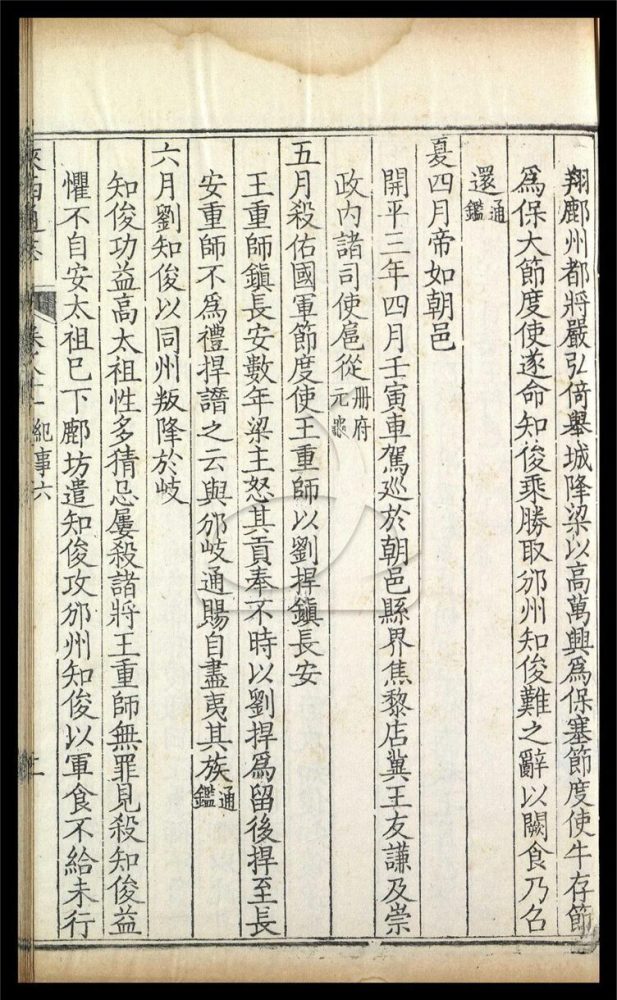 翔鄜州都將嚴弘倚舉城降梁以高萬興爲保塞節度使牛存節
爲保大節度使遂命知俊乘勝取邠州知俊難之辭以闕食乃召
還通鑑
夏四月帝如朝邑
開平三年四月壬寅車駕巡於朝邑縣界焦黎店冀王友謙及崇
政内諸司使扈從册府元龜
五月殺佑國軍節度使王重師以劉捍鎭長安
王重師鎭長安數年梁主怒其貢奉不時以劉捍爲留後捍至長
安重師不爲禮捍譖之云與邠岐通賜自盡夷其族通鑑
六月劉知俊以同州叛降於岐
知俊功益高太祖性多猜忌屢殺諸將王重師無罪見殺知俊益
懼不自安太祖已下鄜坊遣知俊攻邠州知俊以軍食不給未行
紀事六